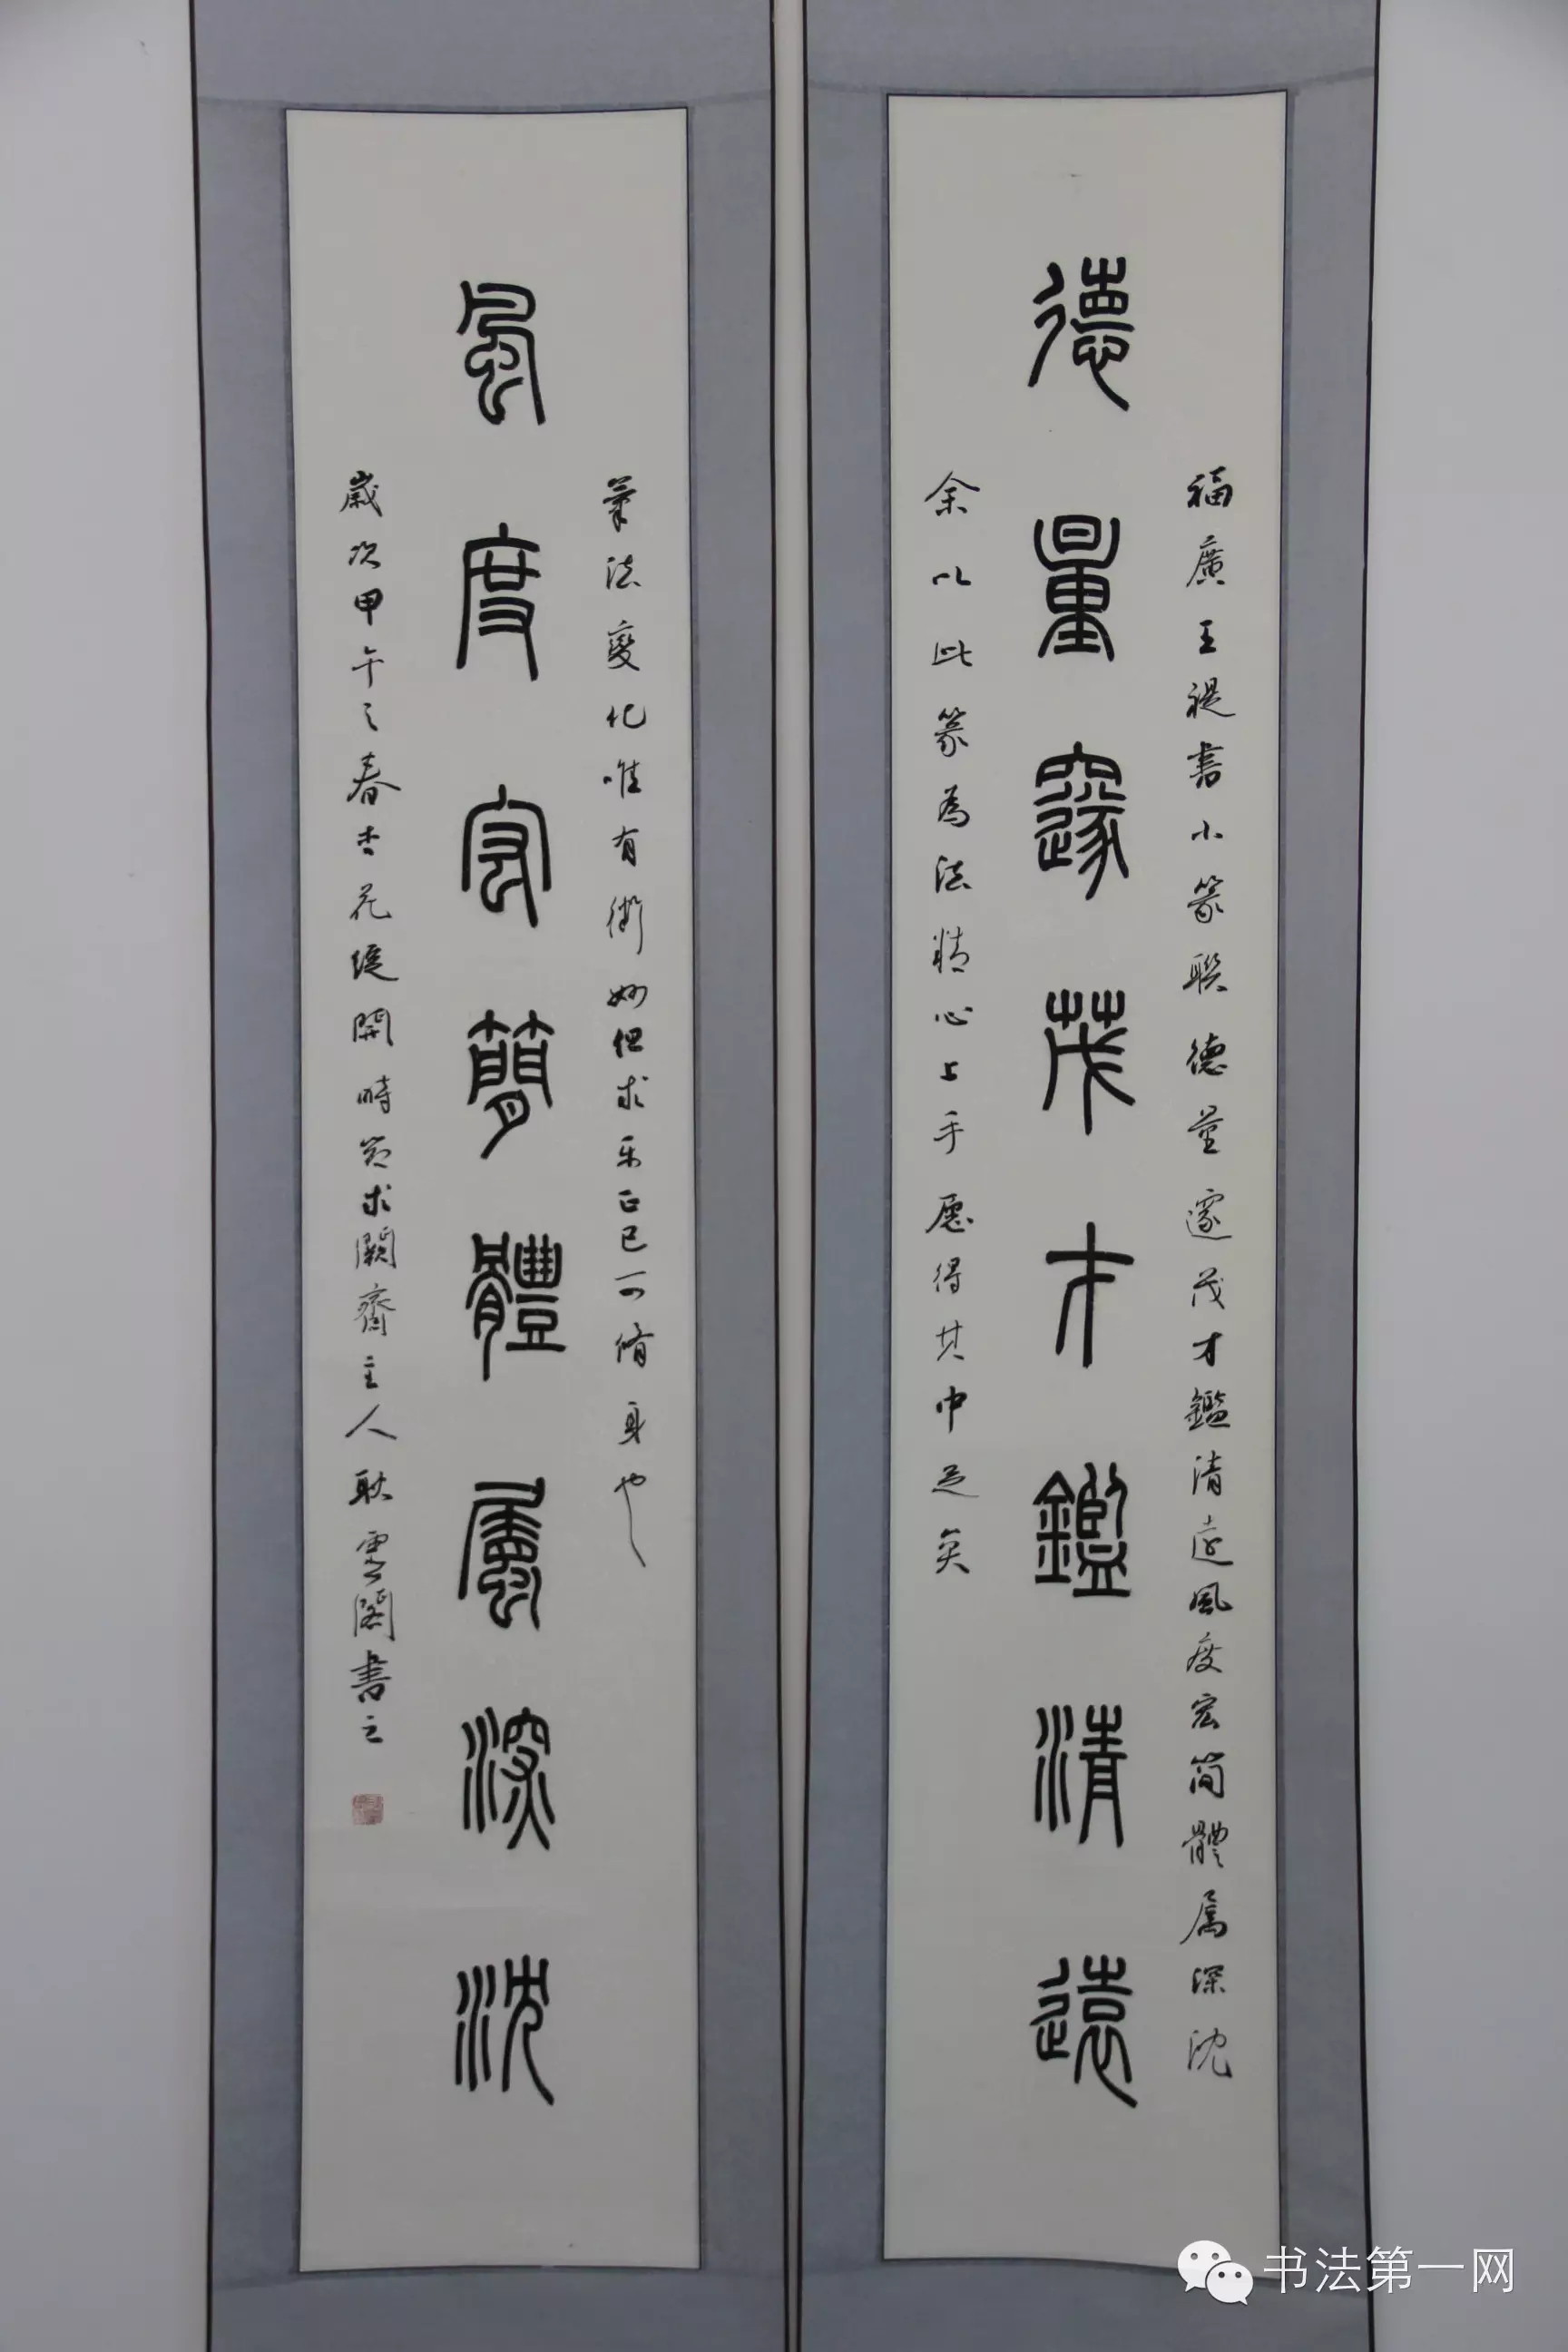 福廣王禔書小篆聯德量邃茂才鑑清遠風度宏简體属深沈
德量邃茂才鑑清遠
余以此篆為法精心上手愿得其中足矣
筆法變化唯有術妙但求正已可脩身也
風度宏簡體屬深沈
歲次甲午之春杏花綻開時节求闕齋主人耿雲閣書之
书法第一网